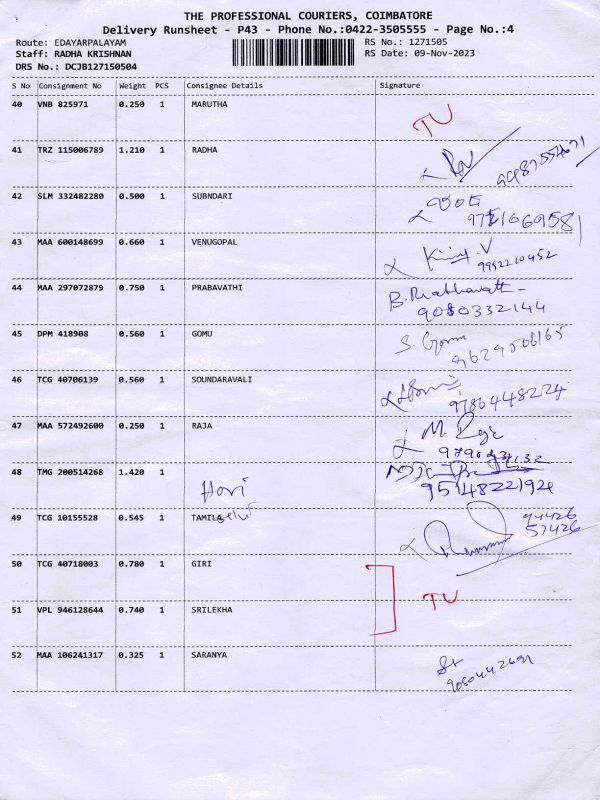 THE PROFESSIONAL COURIERS, COIMBATORE
Delivery Runsheet - P43 - Phone No.:0422-3505555 - Page No.:4
Route: EDAYARPALAYAM
RS No.: 1271505
Staff: RADHA KRISHNAN
RS Date: 09-Nov-2023
DRS No.: DCJB127150504
S No Consignment No Weight PCS Consignee Details Signature
40 VNB 825971 0.250 1 MARUTHA
TU
41 TRZ 115006789 1.210 1 RADHA
42 SLM 332482280 0.500 1 SUBNDARI
43 MAA 600148699 0.660 1 VENUGOPAL
9952210452
44 MAA 297072879 0.750 1 PRABAVATHI
B. Prabhavathi
9080332144
45 DPM 418908 0.560 1 GOMU
S. Gomu
9629006165
46 TCG 40706139 0.560 1 SOUNDARAVALI
9786448224
47 MAA 572492600 0.250 1 RAJA
M. Raja
48 TMG 200514268 1.420 1
Hari
9514822192
49 TCG 10155528 0.545 1 TAMILA
selvi
94426
57426
50 TCG 40718003 0.780 1 GIRI
TU
51 VPL 946128644 0.740 1 SRILEKHA
52 MAA 106241317 0.325 1 SARANYA